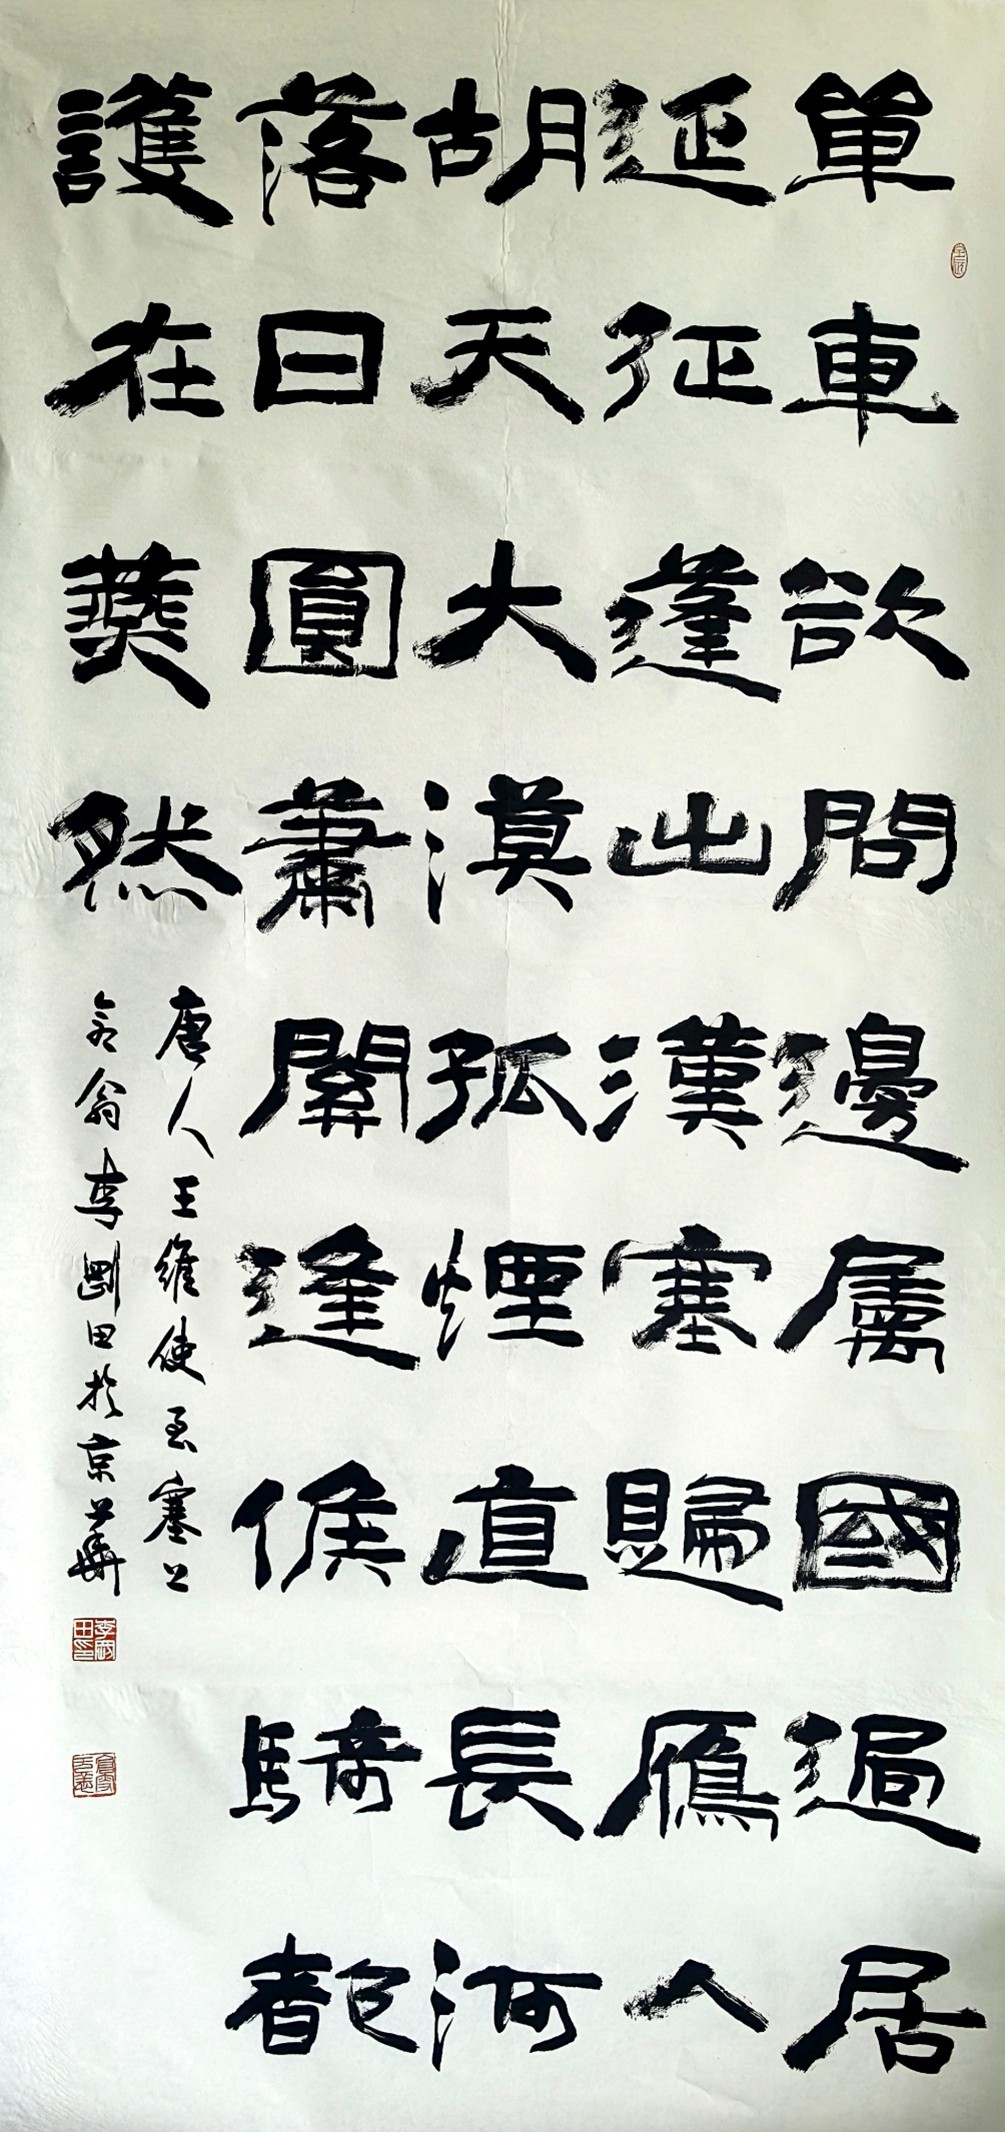 單車欲問邊屬國過居
延征蓬出漢塞歸鴈人
胡天大漠孤煙直長河
落日圓蕭關逢候騎都
護在燕然
唐人王維使至塞上
翁李剛田於京華
李剛田印